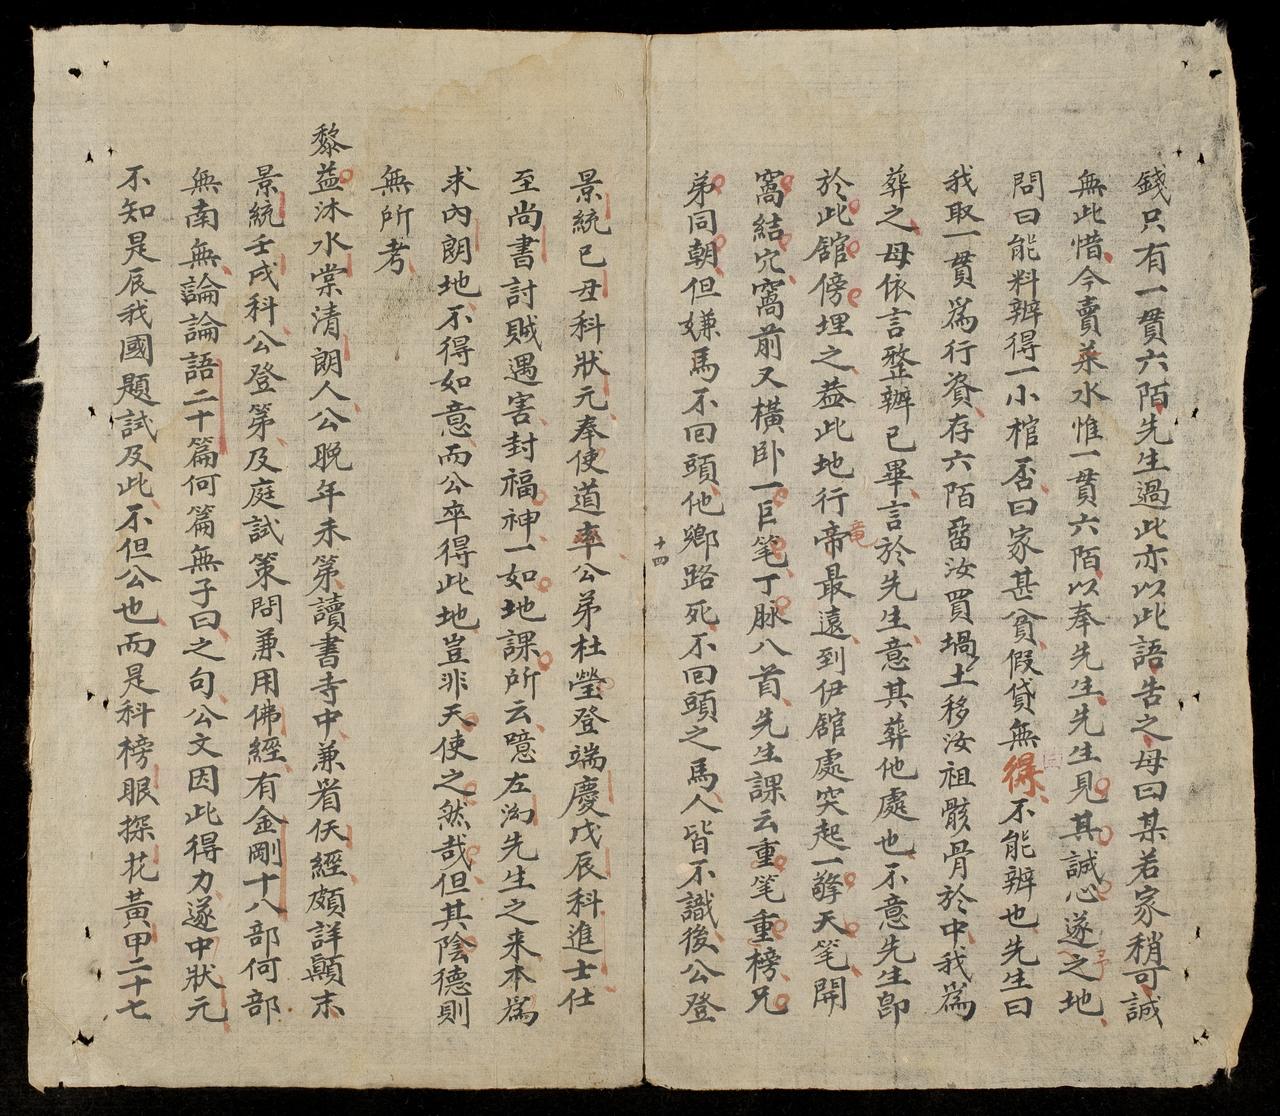 錢只有一貫六陌先生過此亦以此語告之母曰某若家稍可誠
無此惜今賣菜水惟一貫六陌以奉先生先生見其誠心遂予之地
問曰能料辦得一小棺否曰家甚貧假貸無得不能辦也先生曰
我取一貫爲行資存六陌畱汝買堝土移汝祖骸骨於中我爲
葬之母依言整辦已畢言於先生意其葬他處也不意先生卽
於此舘傍埋之葢此地行帝竜最遠到伊舘處突起一擎天筆開
窩結穴窩前又橫卧一巨筆丁脉八首先生課云重筆重榜兄
弟同朝但嫌馬不回頭他鄉路死不回頭之馬人皆不識後公登
十四
景統己丑科狀元奉使道率公弟杜瑩登端慶戊辰科進士仕
至尚書討賊遇害封福神一如地課所云噫左沟先生之来本爲
求內朗地不得如意而公卒得此地豈非天使之然哉但其陰德則
無所考
黎益沐水棠清朗人公晚年未第讀書寺中兼看仸經頗詳顛末
景統壬戌科公登第及庭試策問兼用佛經有金剛十八部何部
無南無論論語二十篇何篇無子曰之句公文因此得力遂中狀元
不知是辰我國題試及此不但公也而是科榜眼探花黃甲二十七